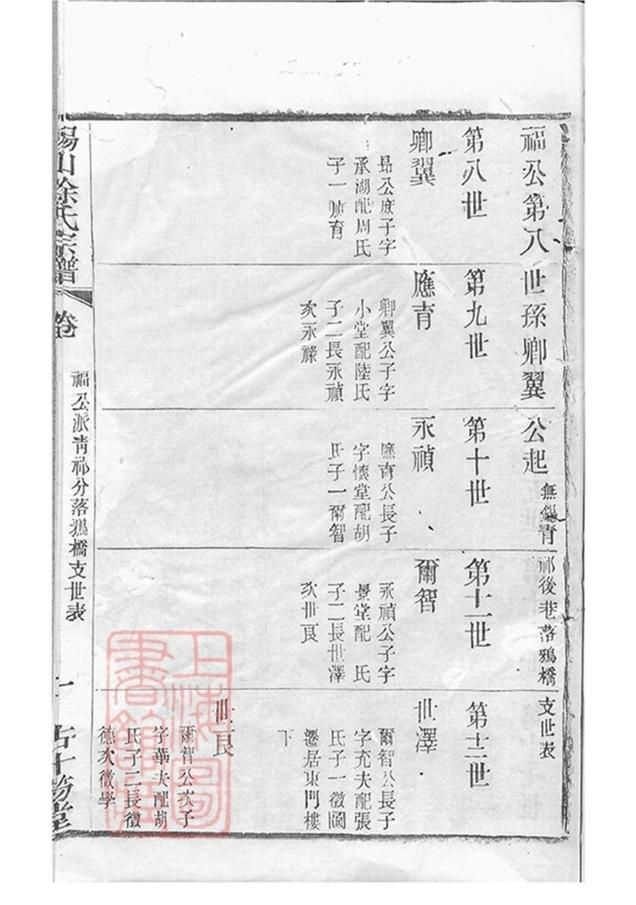 福公第八世孫卿翼公起無錫青祁後巷落鴉橋支世表
第八世
卿翼
昂公庶子字
承湖配周氏
子一應育
第九世
應育
卿翼公子字
小堂配陸氏
子二長永禎
次永祿
第十世
永禎
應育公長子
字懷堂配胡
氏子一爾智
第十一世
爾智
永禎公子字
景堂配 氏
子二長世澤
次世良
第十二世
世澤
爾智公長子
字充夫配張
氏子一徵
遷居東門樓
下
世良
爾智公次子
字華夫配胡
氏子二長徵
德次徵學
錫山徐氏宗譜
卷
福公派青祁分落鴉橋支世表
一
上海圖書館藏